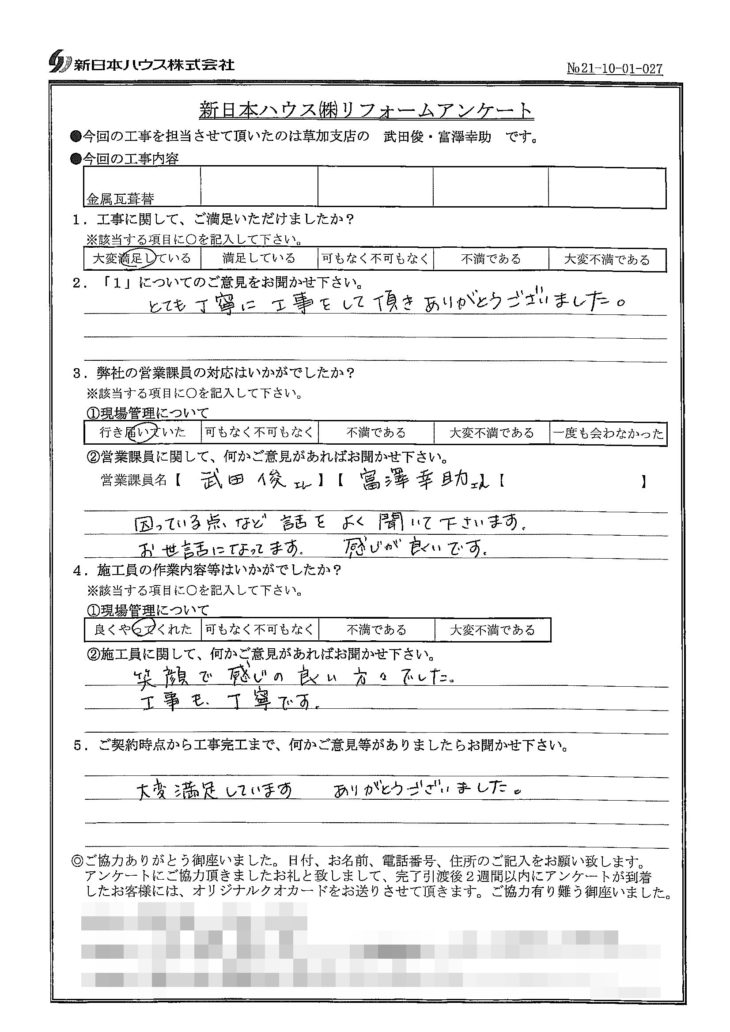 新日本ハウス株式会社
№21-10-01-027
新日本ハウス㈱リフォームアンケート
●今回の工事を担当させて頂いたのは草加支店の 武田俊・富澤幸助 です。
●今回の工事内容
金属瓦葺替
1．工事に関して、ご満足いただけましたか？
※該当する項目に○を記入して下さい。
大変満足している 満足している 可もなく不可もなく 不満である 大変不満である
2．「1」についてのご意見をお聞かせ下さい。
とても丁寧に工事をして頂きありがとうございました。
3．弊社の営業課員の対応はいかがでしたか？
※該当する項目に○を記入して下さい。
①現場管理について
行き届いていた 可もなく不可もなく 不満である 大変不満である 一度も会わなかった
②営業課員に関して、何かご意見があればお聞かせ下さい。
営業課員名【 武田 俊さん 】【 富澤幸助さん 】【 】
困っている点、など 話をよく聞いて下さいます。
お世話になってます。 感じが良いです。
4．施工員の作業内容等はいかがでしたか？
※該当する項目に○を記入して下さい。
①現場管理について
良くやってくれた 可もなく不可もなく 不満である 大変不満である
②施工員に関して、何かご意見があればお聞かせ下さい。
笑顔で感じの良い方々でした。
工事も、丁寧です。
5．ご契約時点から工事完工まで、何かご意見等がありましたらお聞かせ下さい。
大変満足しています ありがとうございました。
◎ご協力ありがとう御座いました。日付、お名前、電話番号、住所のご記入をお願い致します。
アンケートにご協力頂きましたお礼と致しまして、完了引渡後2週間以内にアンケートが到着
したお客様には、オリジナルクオカードをお送りさせて頂きます。ご協力有り難う御座いました。